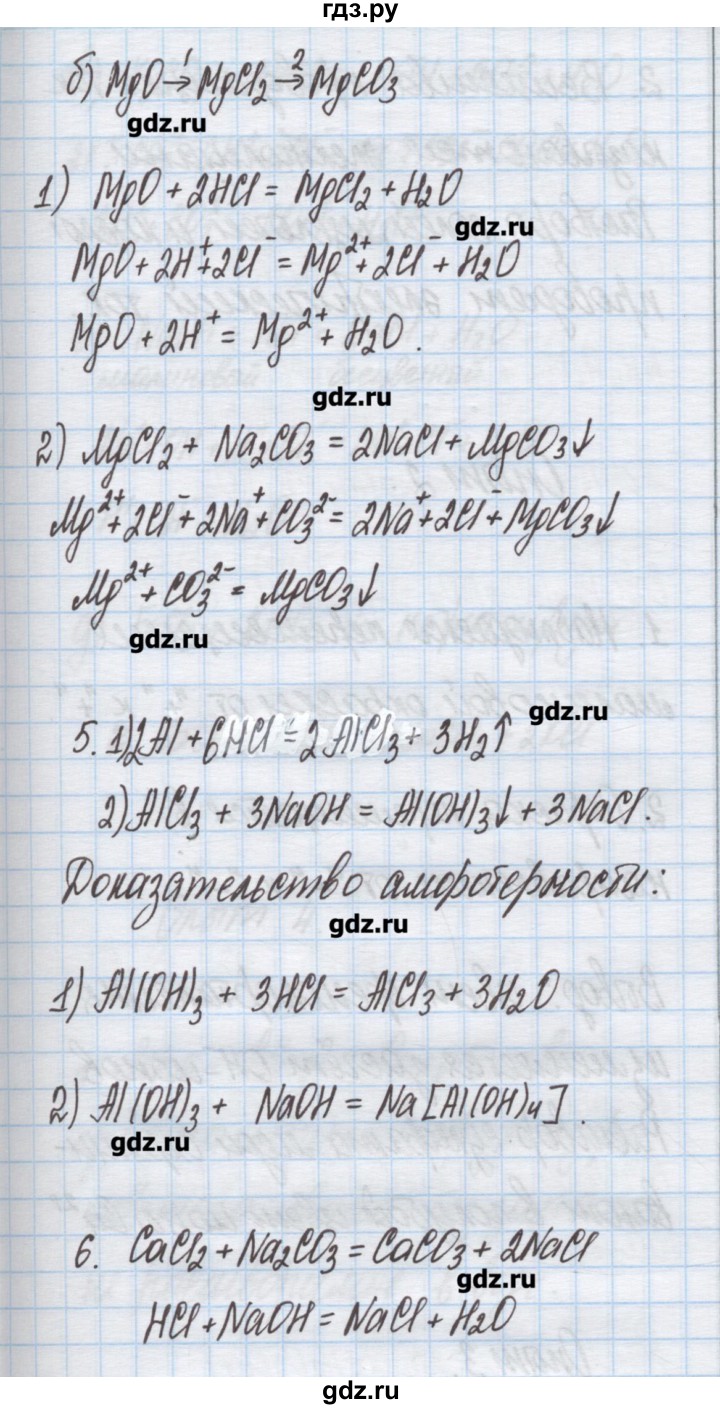 гдз.ру
б) MgO →¹ MgCl₂ →² MgCO₃
gdz.ru
1) MgO + 2HCl = MgCl₂ + H₂O
gdz.ru
MgO + 2H⁺ + 2Cl⁻ = Mg²⁺ + 2Cl⁻ + H₂O
MgO + 2H⁺ = Mg²⁺ + H₂O.
gdz.ru
2) MgCl₂ + Na₂CO₃ = 2NaCl + MgCO₃↓
Mg²⁺ + 2Cl⁻ + 2Na⁺ + CO₃²⁻ = 2Na⁺ + 2Cl⁻ + MgCO₃↓
Mg²⁺ + CO₃²⁻ = MgCO₃↓
gdz.ru
gdz.ru
5. 1) 2Al + 6HCl = 2AlCl₃ + 3H₂↑
2) AlCl₃ + 3NaOH = Al(OH)₃↓ + 3NaCl.
Доказательство аморотерности:
gdz.ru
1) Al(OH)₃ + 3HCl = AlCl₃ + 3H₂O
2) Al(OH)₃ + NaOH = Na[Al(OH)₄].
gdz.ru
6. CaCl₂ + Na₂CO₃ = CaCO₃ + 2NaCl
gdz.ru
HCl + NaOH = NaCl + H₂O
gdz.ru